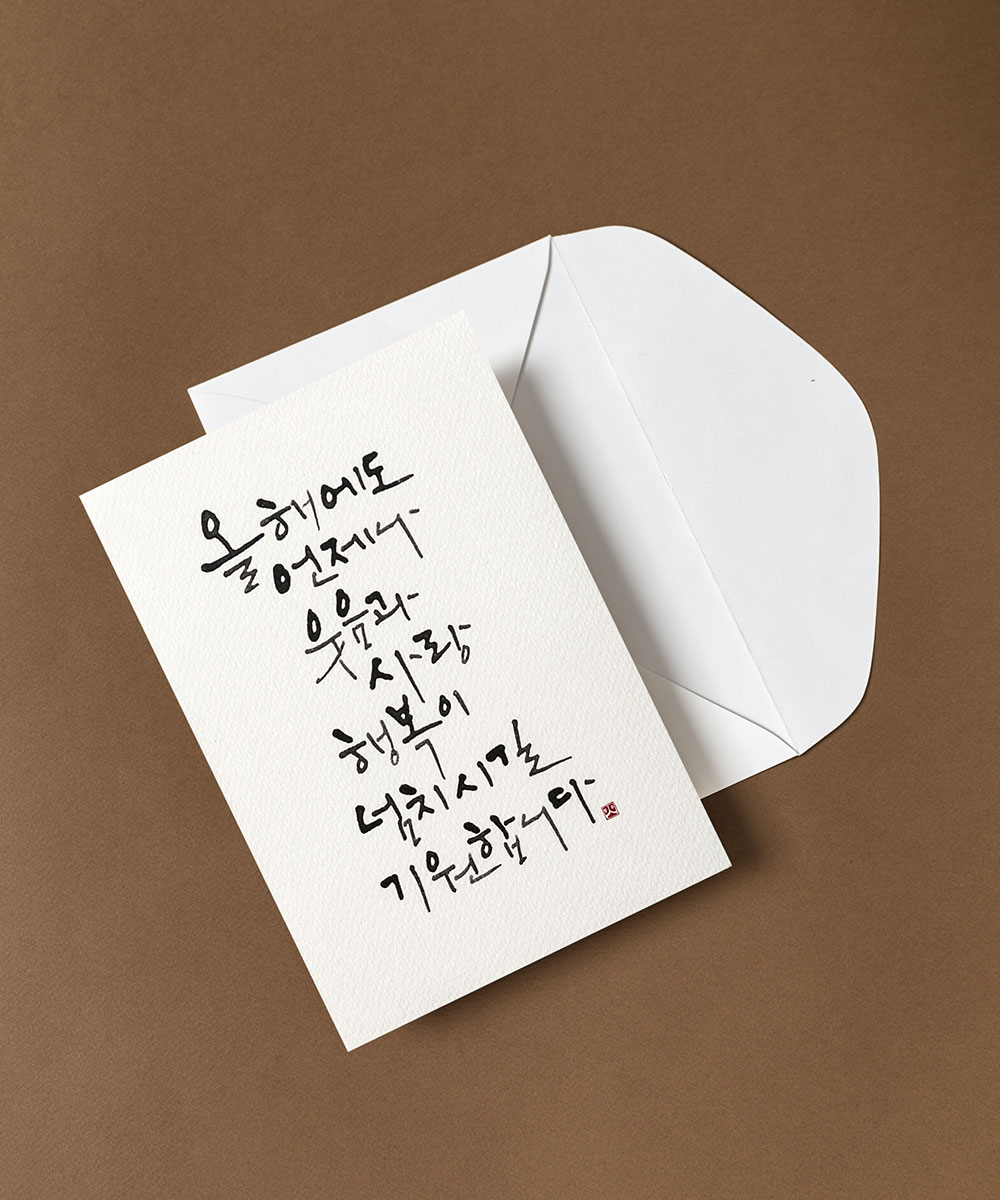 올해에도
언제나
웃음과
사랑
행복이
넘치시길
기원합니다